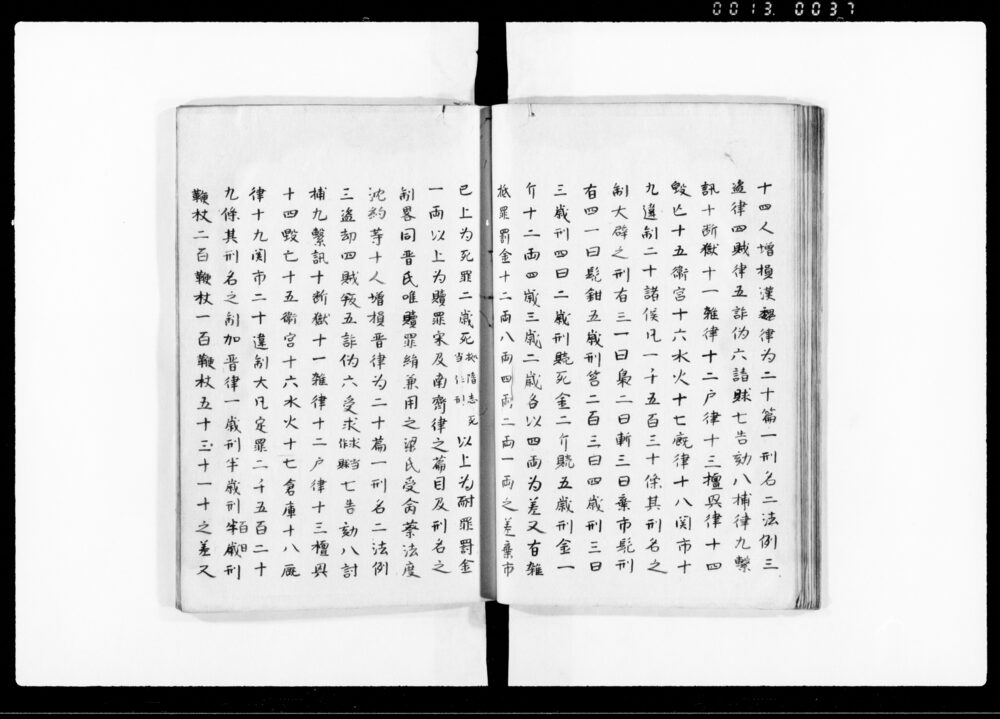 0013.0037
十四人增損漢魏律为二十篇一刑名二法例三
盗律四賊律五詐伪六請賕七告劾八捕律九繫
訊十断獄十一雜律十二户律十三擅興律十四
毀亡十五衛宫十六水火十七厩律十八関市十
九違制二十諸侯凡一千五百三十條其刑名之
制大辟之刑有三一曰梟二曰斬三曰棄市髡刑
有四一曰髡鉗五歳刑笞二百三曰四歳刑三曰
三歳刑四曰二歳刑贖死金二斤贖五歳刑金一
斤十二両四歳三歳二歳各以四両为差又有雜
抵罪罰金十二両八両四両二両一両之差棄市
已上为死罪二歳死 死 当作刑 以上为耐罪罰金
一両以上为贖罪宋及南齊律之篇目及刑名之
制畧同晋氏唯贖罪絹兼用之梁氏受命蔡法度
沈約等十人增損晋律为二十篇一刑名二法例
三盗刧四賊叛五詐伪六受求 求当作賕 七告劾八討
捕九繫訊十断獄十一雜律十二户律十三擅興
十四毀亡十五衛宫十六水火十七倉庫十八厩
律十九関市二十違制大凡定罪二千五百二十
九條其刑名之制加晋律一歳刑半歳刑百日刑
鞭杖二百鞭杖一百鞭杖五十三十一十之差又